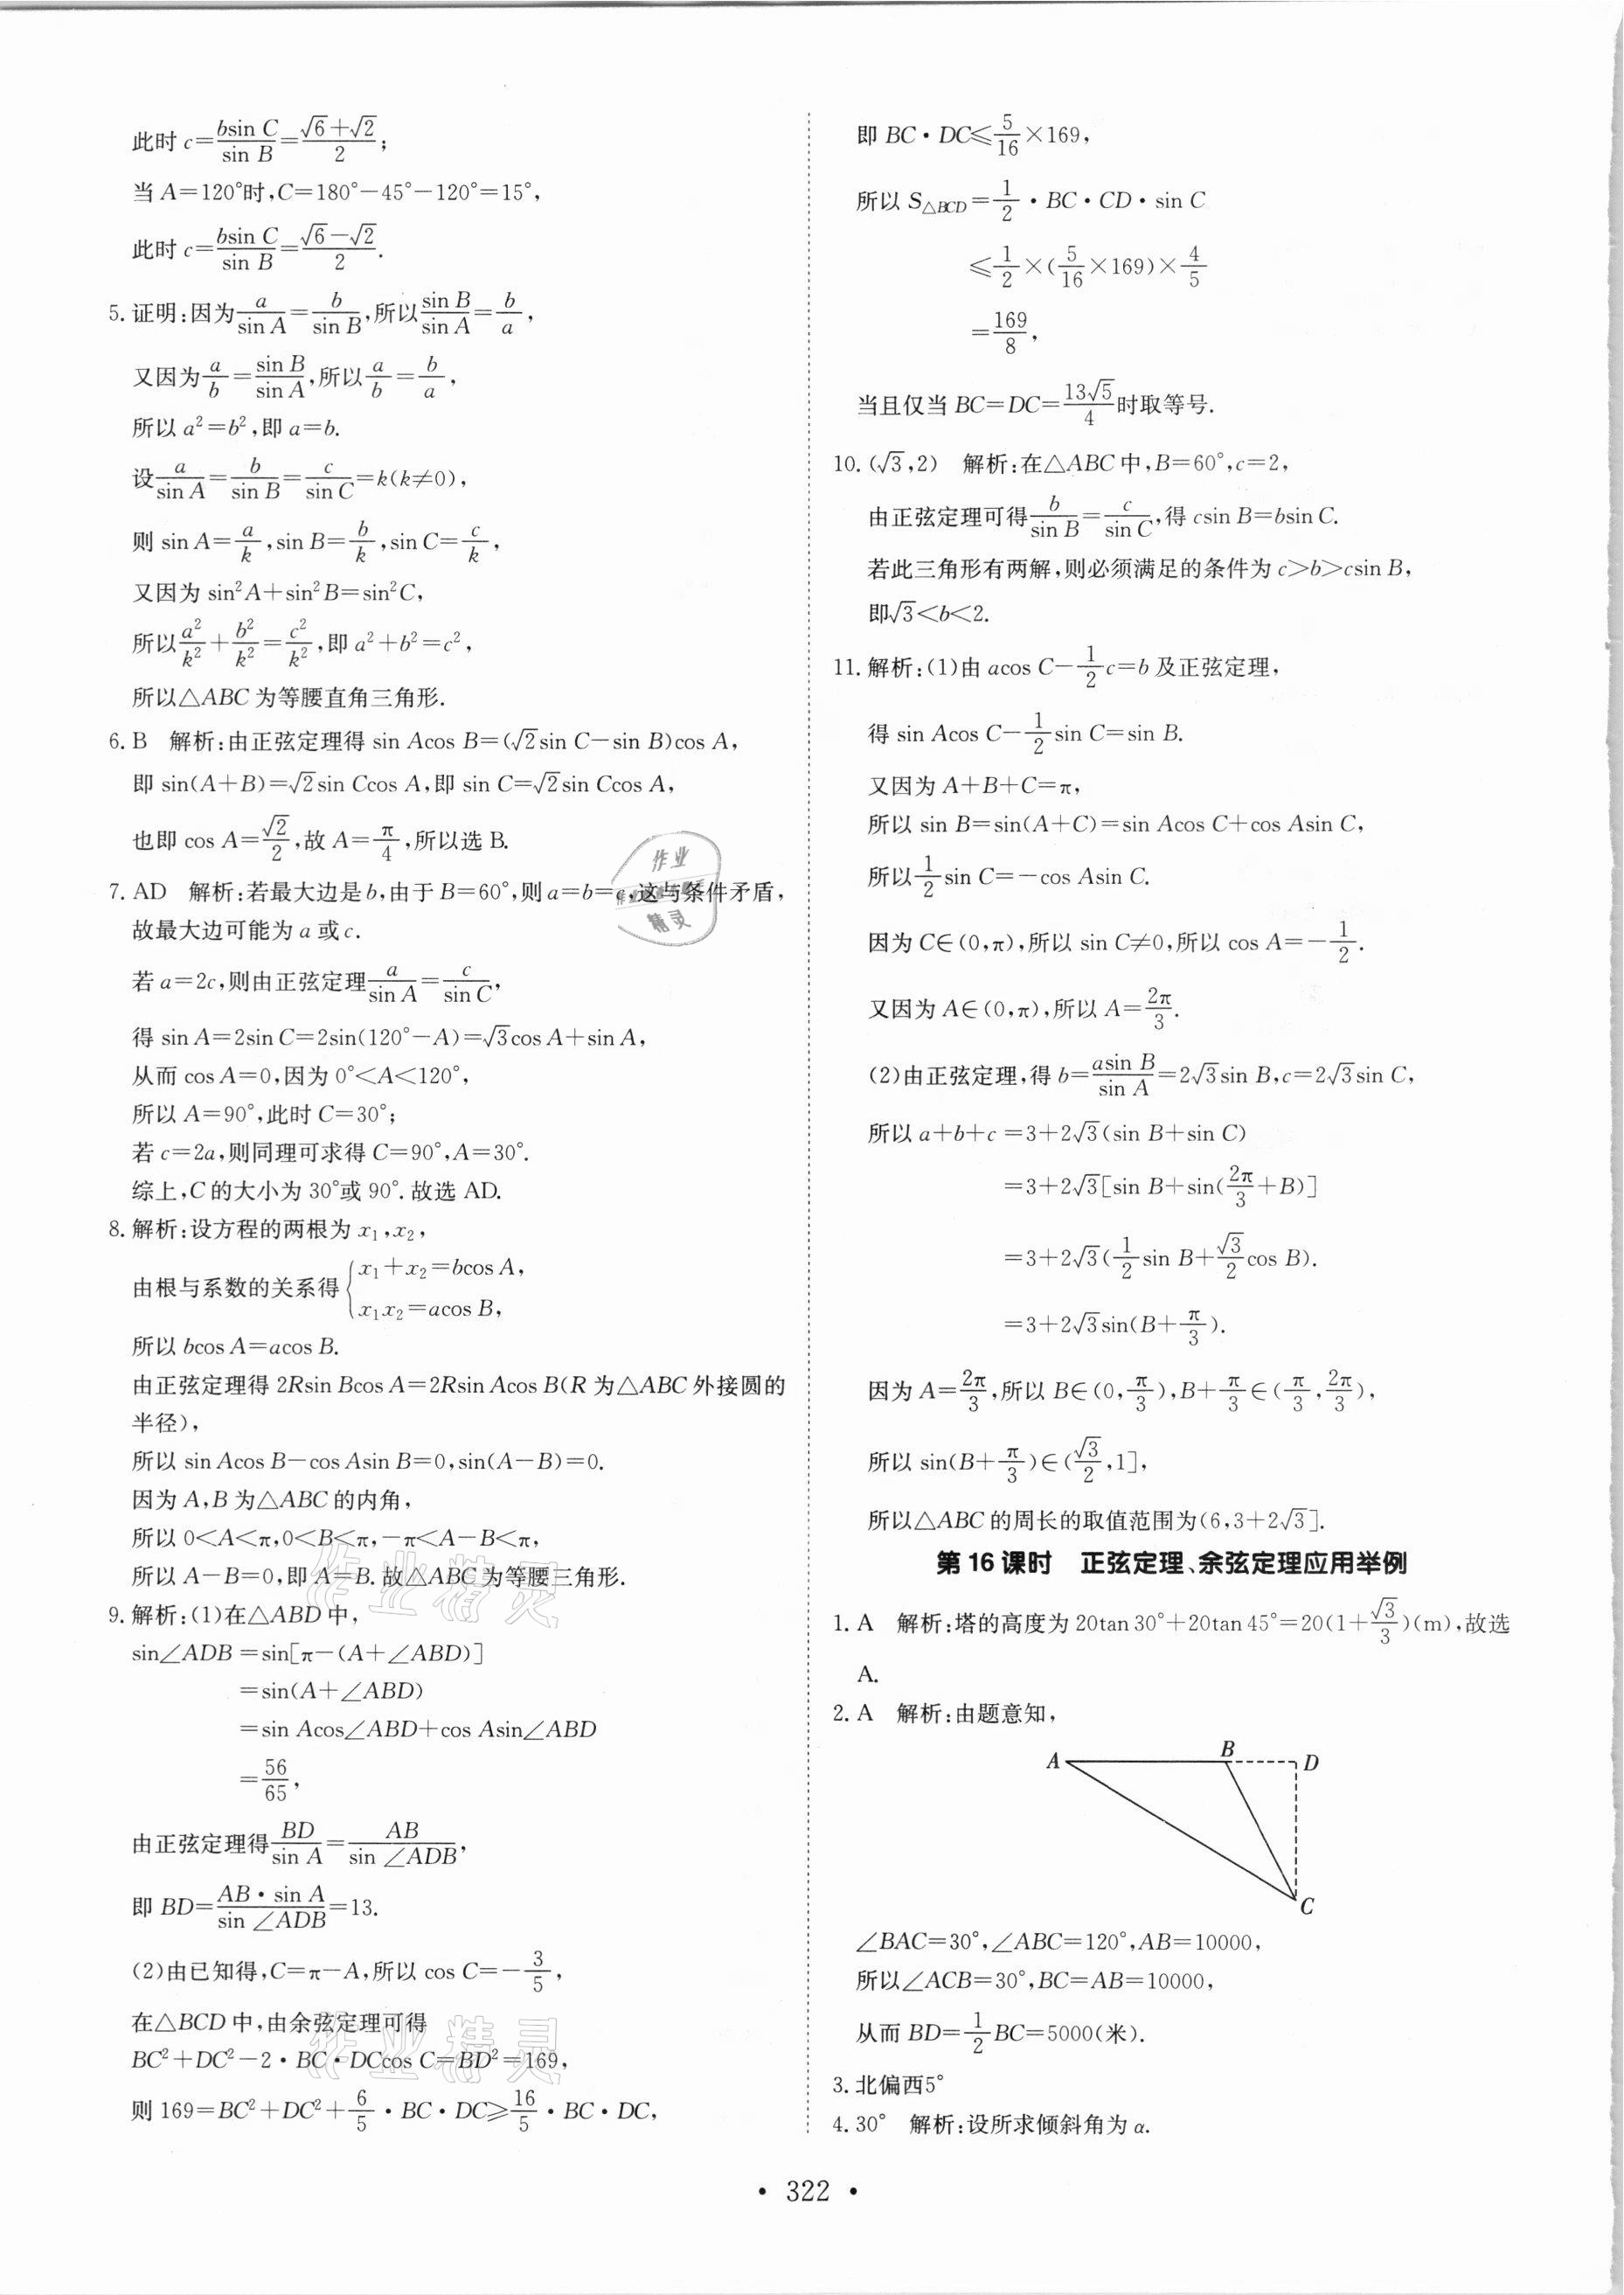 此时 c=bsin C/sin B=(√6+√2)/2;
当 A=120°时,C=180°-45°-120°=15°,
此时 c=bsin C/sin B=(√6-√2)/2.
5.证明:因为a/sin A=b/sin B,所以sin B/sin A=b/a,
又因为a/b=sin B/sin A,所以a/b=b/a,
所以 a²=b²,即 a=b.
设a/sin A=b/sin B=c/sin C=k(k≠0),
则 sin A=a/k,sin B=b/k,sin C=c/k,
又因为 sin²A+sin²B=sin²C,
所以a²/k²+b²/k²=c²/k²,即 a²+b²=c²,
所以△ABC 为等腰直角三角形.
6. B 解析:由正弦定理得 sin Acos B=(√2sin C-sin B)cos A,
即 sin(A+B)=√2sin Ccos A,即 sin C=√2sin Ccos A,
也即 cos A=√2/2,故 A=π/4,所以选 B.
7. AD 解析:若最大边是 b,由于 B=60°,则 a=b=c,这与条件矛盾,
故最大边可能为 a 或 c.
若 a=2c,则由正弦定理a/sin A=c/sin C,
得 sin A=2sin C=2sin(120°-A)=√3cos A+sin A,
从而 cos A=0,因为 0°<A<120°,
所以 A=90°,此时 C=30°;
若 c=2a,则同理可求得 C=90°,A=30°.
综上,C 的大小为 30°或 90°.故选 AD.
8.解析:设方程的两根为 x₁,x₂,
由根与系数的关系得{x₁+x₂=bcos A,
x₁x₂=acos B,
所以 bcos A=acos B.
由正弦定理得 2Rsin Bcos A=2Rsin Acos B(R 为△ABC 外接圆的
半径),
所以 sin Acos B-cos Asin B=0,sin(A-B)=0.
因为 A,B 为△ABC 的内角,
所以 0<A<π,0<B<π,-π<A-B<π,
所以 A-B=0,即 A=B.故△ABC 为等腰三角形.
9.解析:(1)在△ABD 中,
sin∠ADB=sin[π-(A+∠ABD)]
=sin(A+∠ABD)
=sin Acos∠ABD+cos Asin∠ABD
=56/65,
由正弦定理得BD/sin A=AB/sin ∠ADB,
即 BD=AB·sin A/sin ∠ADB=13.
(2)由已知得,C=π-A,所以 cos C=-3/5,
在△BCD 中,由余弦定理可得
BC²+DC²-2·BC·DCcos C=BD²=169,
则 169=BC²+DC²+6/5·BC·DC≥16/5·BC·DC,
即 BC·DC≤5/16×169,
所以 S△BCD=1/2·BC·CD·sin C
≤1/2×(5/16×169)×4/5
=169/8,
当且仅当 BC=DC=13√5/4时取等号.
10.(√3,2) 解析:在△ABC 中,B=60°,c=2,
由正弦定理可得b/sin B=c/sin C,得 csin B=bsin C.
若此三角形有两解,则必须满足的条件为 c>b>csin B,
即√3<b<2.
11.解析:(1)由 acos C-1/2c=b 及正弦定理,
得 sin Acos C-1/2sin C=sin B.
又因为 A+B+C=π,
所以 sin B=sin(A+C)=sin Acos C+cos Asin C,
所以1/2sin C=-cos Asin C.
因为 C∈(0,π),所以 sin C≠0,所以 cos A=-1/2.
又因为 A∈(0,π),所以 A=2π/3.
(2)由正弦定理,得 b=asin B/sin A=2√3sin B,c=2√3sin C,
所以 a+b+c=3+2√3(sin B+sin C)
=3+2√3[sin B+sin(2π/3+B)]
=3+2√3(1/2sin B+√3/2cos B).
=3+2√3sin(B+π/3).
因为 A=2π/3,所以 B∈(0,π/3),B+π/3∈(π/3,2π/3),
所以 sin(B+π/3)∈(√3/2,1],
所以△ABC 的周长的取值范围为(6,3+2√3].
第 16 课时 正弦定理、余弦定理应用举例
1. A 解析:塔的高度为 20tan 30°+20tan 45°=20(1+√3/3)(m),故选
A.
2. A 解析:由题意知,
A B D
C
∠BAC=30°,∠ABC=120°,AB=10000,
所以∠ACB=30°,BC=AB=10000,
从而 BD=1/2BC=5000(米).
3.北偏西5°
4.30° 解析:设所求倾斜角为 α.
作业精灵
作业精灵
· 322 ·